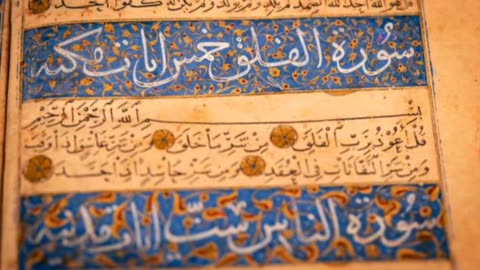 كفوا احد
سورة الفلق خمس ايات مكية
بسم الله الرحمن الرحيم
قل أعوذ برب الفلق من شر ما خلق ومن شر غاسق اذا وقب
ومن شر النفاثات في العقد ومن شر حاسد اذا حسد
سورة الناس ست ايات مدنية